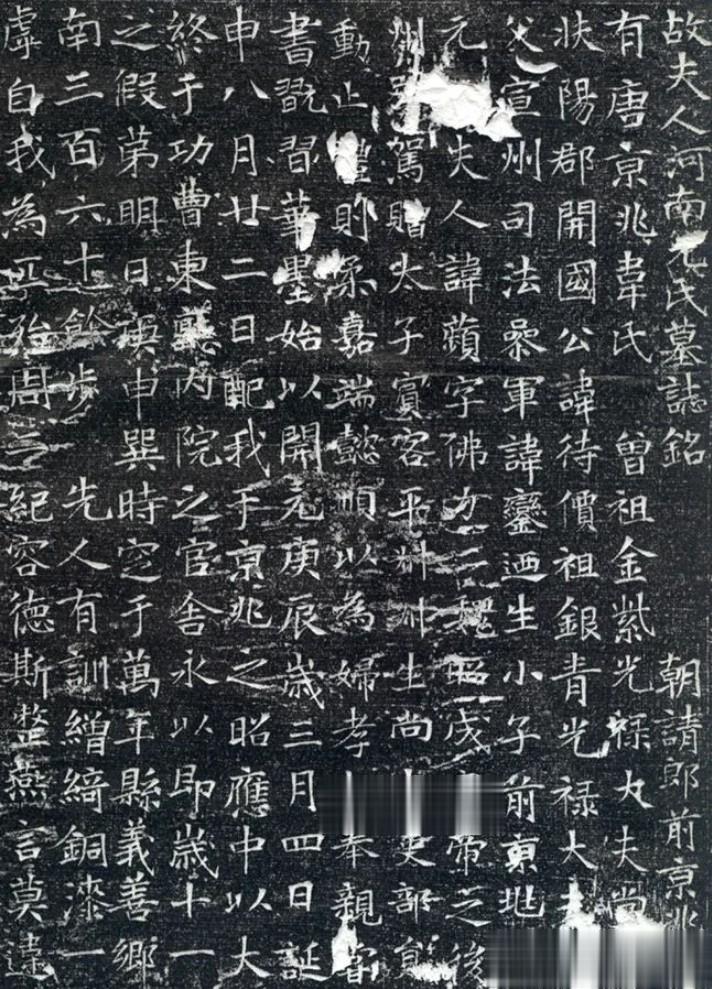 故夫人河南元氏墓誌銘 朝請郎前京兆
有唐京兆韋氏 曾祖金紫光祿大夫尚
扶陽郡開國公諱待價祖銀青光祿大夫
父宣州司法叅軍諱鑾迺生小子前京兆
元 夫人諱蘋字佛力二魏昭成 帝之後
州別駕贈太子賓客平 州生尚 吏部員
動止禮則柔嘉端懿順以為婦孝 奉親甞
書戲習華墨始以開元庚辰歲三月四日誕
申八月廿二日配我于京兆之昭應中以大
終于功曹東廳內院之官舍永以即歲十一
之假第明日庚申巽時窆于萬年縣義善鄉
南三百六十餘步 先人有訓繒綺銅漆一
虛自我為匹殆周二紀容德斯整燕言莫違